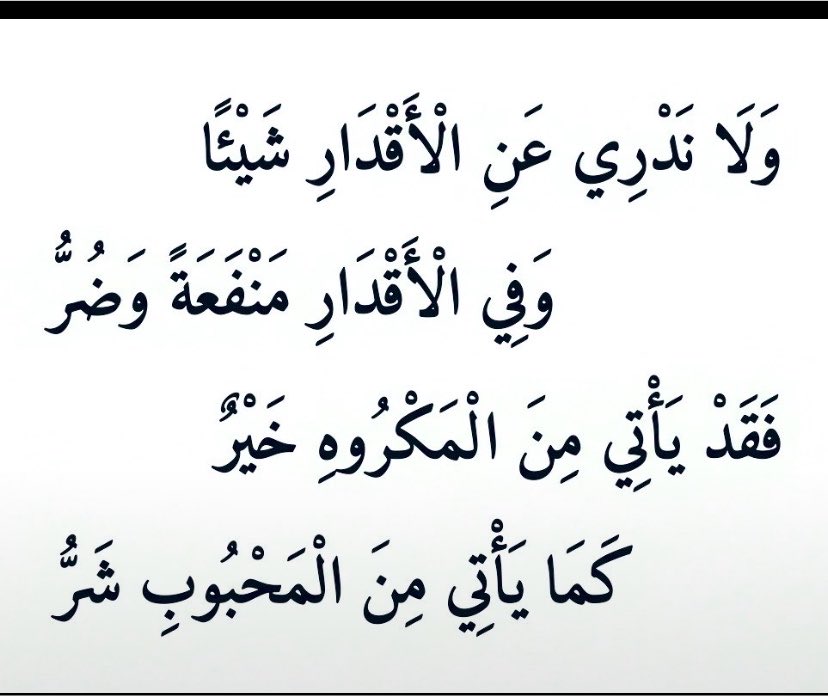 وَلَا نَدْرِي عَنِ الْأَقْدَارِ شَيْئًا
وَفِي الْأَقْدَارِ مَنْفَعَةً وَضُرُّ
فَقَدْ يَأْتِي مِنَ الْمَكْرُوهِ خَيْرٌ
كَمَا يَأْتِي مِنَ الْمَحْبُوبِ شَرُّ